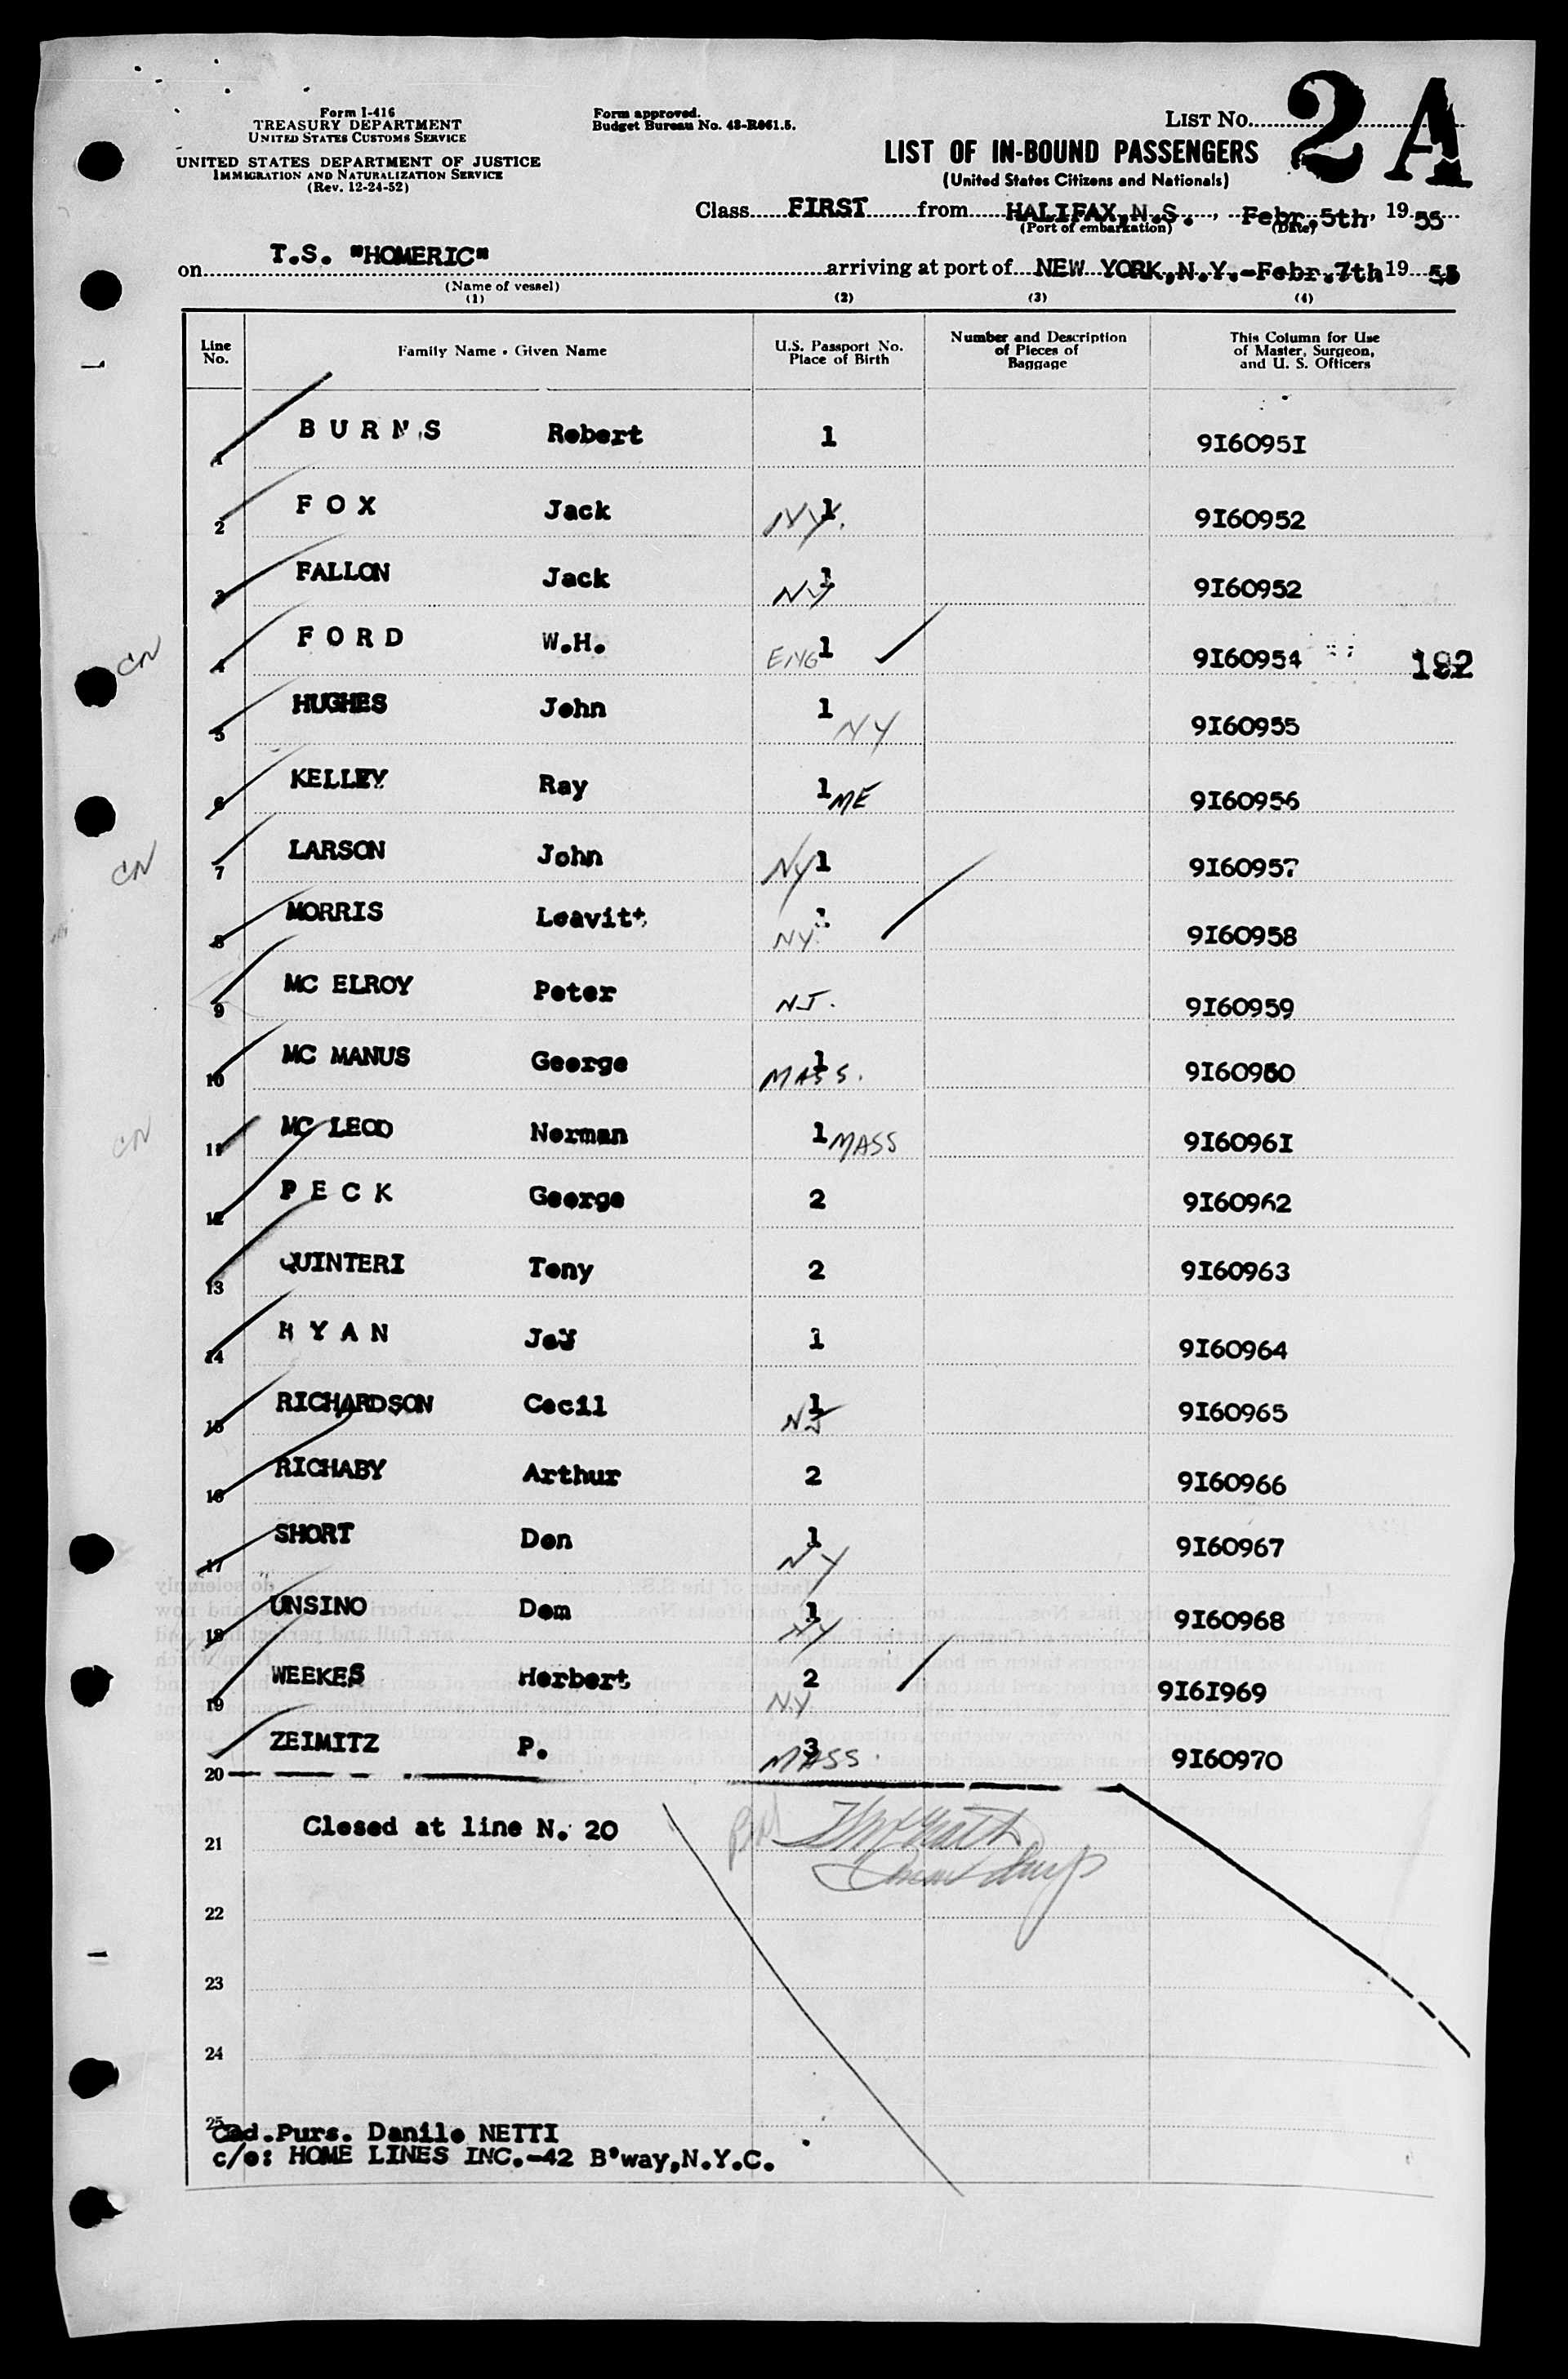 Form I-416
TREASURY DEPARTMENT
UNITED STATES CUSTOMS SERVICE
UNITED STATES DEPARTMENT OF JUSTICE
IMMIGRATION AND NATURALIZATION SERVICE
(Rev. 12-24-52)
Form approved.
Budget Bureau No. 43-R061.5.
LIST No. 2A
LIST OF IN-BOUND PASSENGERS
(United States Citizens and Nationals)
Class FIRST from HALIFAX, N.S., Febr. 5th, 1955
(Port of embarkation) (Date)
on T.S. "HOMERIC" arriving at port of NEW YORK, N.Y.-Febr. 7th 1955
(Name of vessel)
(1) (2) (3) (4)
Line No. Family Name - Given Name U.S. Passport No. Place of Birth Number and Description of Pieces of Baggage This Column for Use of Master, Surgeon, and U. S. Officers
1 BURNS Robert 1 9I6095I
2 FOX Jack 1 NY. 9I60952
3 FALLON Jack 1 NY 9I60952
CN 4 FORD W.H. ENG 1 9I60954 192
5 HUGHES John 1 NY 9I60955
6 KELLEY Ray 1 ME 9I60956
CN 7 LARSON John NY 1 9I60957
8 MORRIS Leavitt 1 NY. 9I60958
9 MC ELROY Peter NJ. 9I60959
10 MC MANUS George 1 MASS. 9I60960
CN 11 MC LEOD Norman 1 MASS 9I6096I
12 PECK George 2 9I60962
13 QUINTERI Tony 2 9I60963
14 RYAN 1 9I60964
15 RICHARDSON Cecil 1 NJ 9I60965
16 RICHABY Arthur 2 9I60966
17 SHORT Don 1 NY 9I60967
18 UNSINO Dom 1 NY 9I60968
19 WEEKES Herbert 2 N.Y 9I6I969
20 ZEIMITZ P. 3 MASS. 9I60970
21 Closed at line N. 20
22
23
24
25
Cad.Purs. Danilo NETTI
c/o: HOME LINES INC.-42 B'way, N.Y.C.